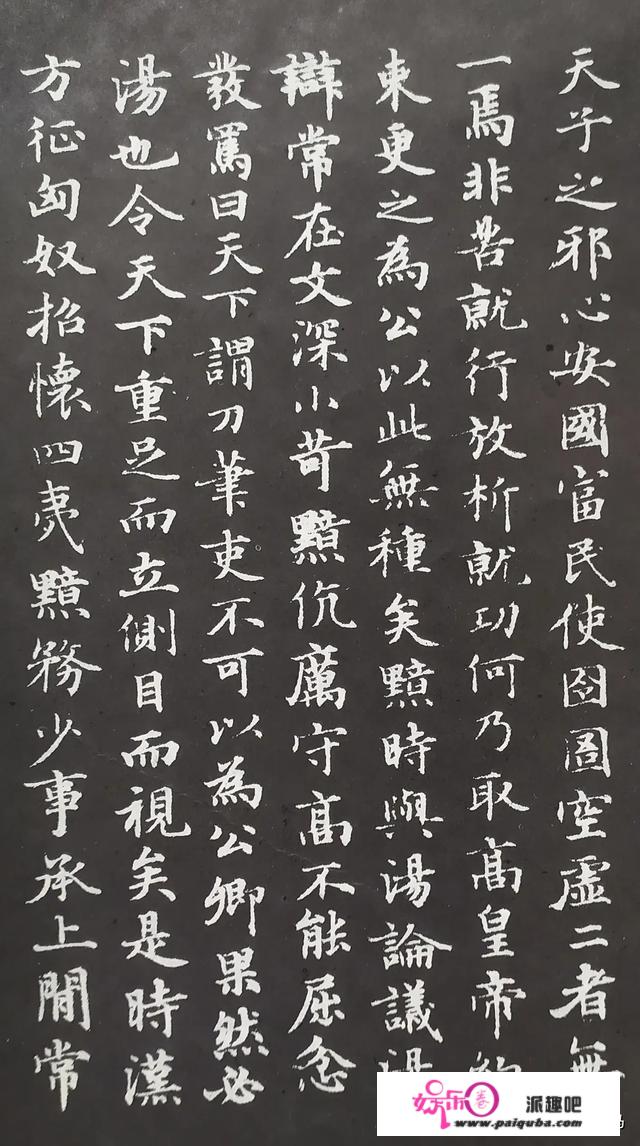 天子之邪心安國富民使囹圄空虛二者無
一焉非苦就行放析就功何乃取高皇帝約
東更之為公以此無種矣黯時與湯論議湯
辯常在文深小苛黯伉厲守高不能屈忿
發罵曰天下謂刀筆吏不可以為公卿果然必
湯也令天下重足而立側目而視矣是時漢
方征匈奴招懷四夷黯務少事承上閒常
娱乐圈 派趣吧
www.paiquba.com